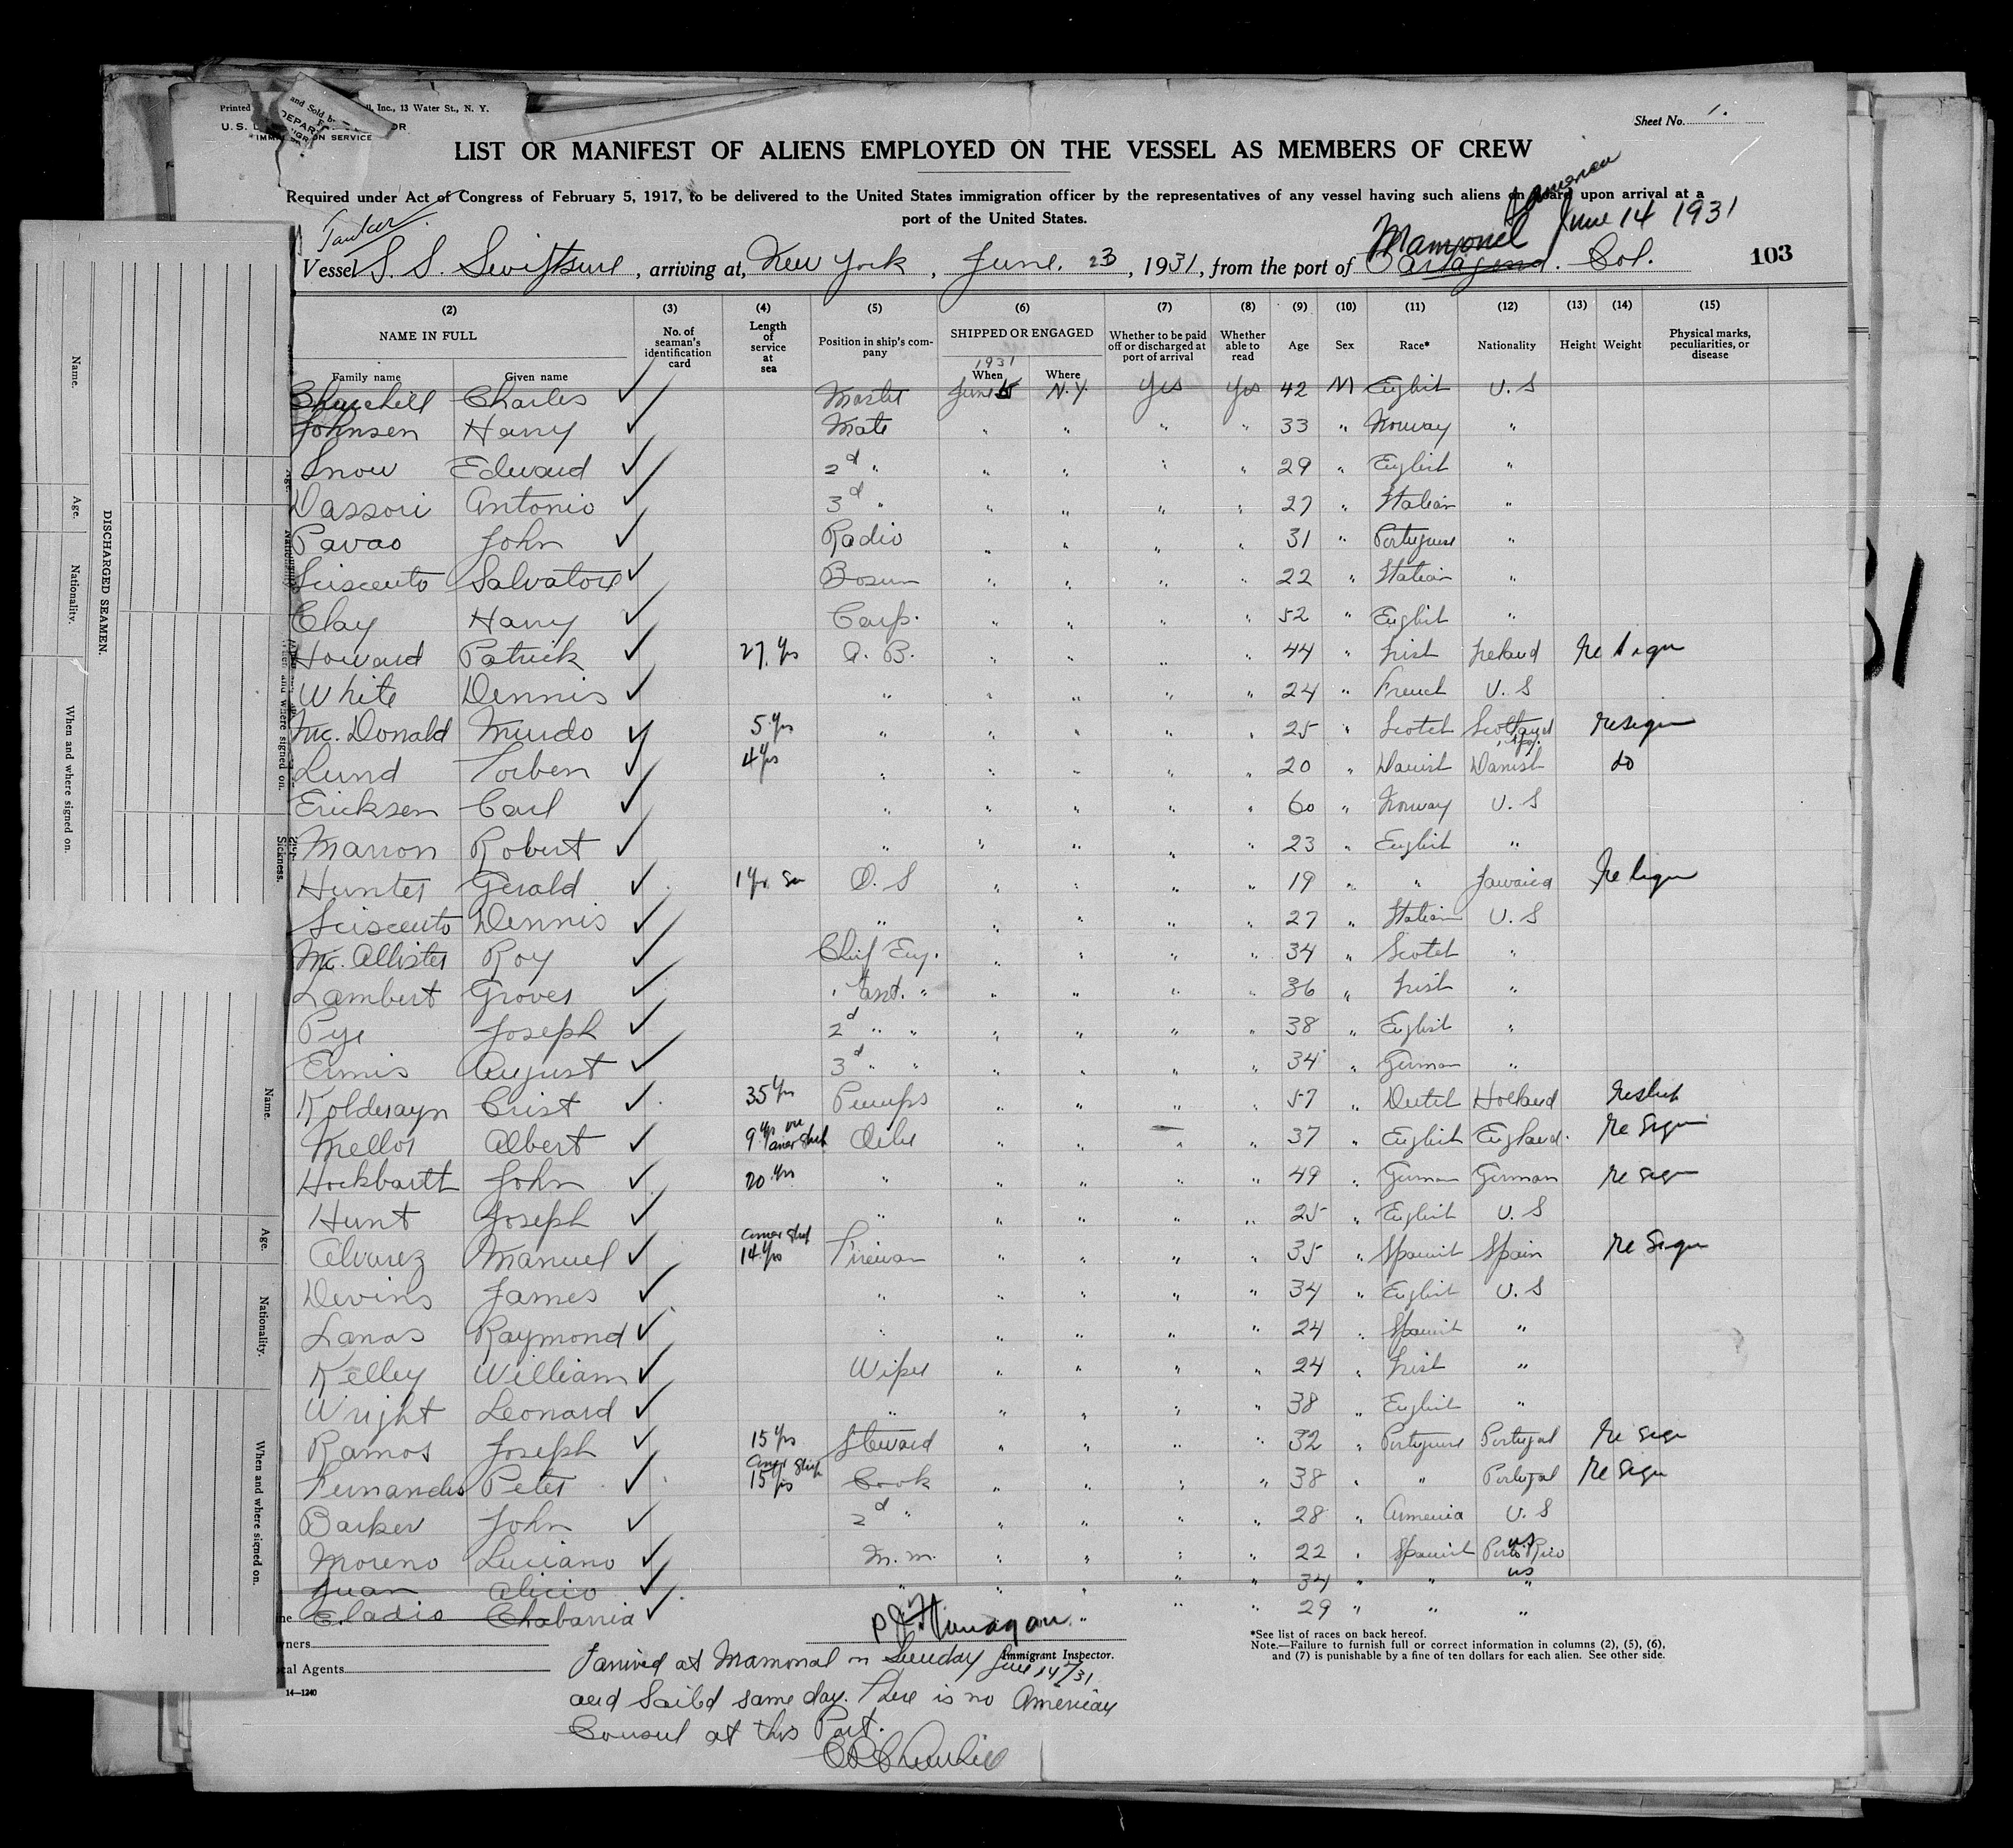 Printed and Sold by Inc., 13 Water St., N. Y.
U. S. DEPAR OR
IMMIGRATION SERVICE
Sheet No. 1.
LIST OR MANIFEST OF ALIENS EMPLOYED ON THE VESSEL AS MEMBERS OF CREW
Required under Act of Congress of February 5, 1917, to be delivered to the United States immigration officer by the representatives of any vessel having such aliens on board upon arrival at a
port of the United States.
Tanker
Mamonal June 14 1931
Vessel S. S. Swiftsure, arriving at New York, June. 23, 1931, from the port of Cartagena. Col. 103
(2) (3) (4) (5) (6) (7) (8) (9) (10) (11) (12) (13) (14) (15)
NAME IN FULL No. of seaman's identification card Length of service at sea Position in ship's company SHIPPED OR ENGAGED Whether to be paid off or discharged at port of arrival Whether able to read Age Sex Race* Nationality Height Weight Physical marks, peculiarities, or disease
Family name Given name 1931 When Where
Churchill Charles ✓ Master June 5 N.Y. Yes Yes 42 M English U. S
Johnsen Harry ✓ Mate " " " " 33 " Norway "
Snow Edward ✓ 2d " " " " " 29 " English "
Dassori Antonio ✓ 3d " " " " " 27 " Italian "
Pavao John ✓ Radio " " " " 31 " Portuguese "
Sciscento Salvatore ✓ Bosun " " " " 22 " Italian "
Clay Harry ✓ Carp. " " " " 52 " English "
Howard Patrick ✓ 27 yrs A. B. " " " " 44 " Irish Ireland Re sign
White Dennis ✓ " " " " " 24 " French U. S
Mc. Donald Murdo ✓ 5 yrs " " " " " 25 " Scotch Scotland resign
Lund Torben ✓ 4 yrs " " " " " 20 " Danish Danish do
Ericksen Carl ✓ " " " " " 60 " Norway U. S
Marron Robert ✓ " " " " " 23 " English "
Hunter Gerald ✓ 1 yr O. S " " " " 19 " " Jamaica Re sign
Sciscento Dennis ✓ " " " " " 27 " Italian U. S
Mc. Allister Roy ✓ Chief Eng. " " " " 34 " Scotch "
Lambert Grover ✓ " 1 asst. " " " " " 36 " Irish "
Pye Joseph ✓ 2d " " " " " " 38 " English "
Ermis August ✓ 3d " " " " " " 34 " German "
Kolderayn Crist ✓ 35 yrs Pumps " " " " 57 " Dutch Holland
Mellor Albert ✓ 9 yrs on Amer Ship Oiler " " " " 37 " English England. Re Sign
Hockbarth John ✓ 20 yrs " " " " " 49 " German German Re sign
Hunt Joseph ✓ " " " " " 25 " English U. S
Alvarez Manuel ✓ Amer Ship 14 yrs Fireman " " " " 35 " Spanish Spain Re Sign
Devins James ✓ " " " " " 34 " English U. S
Lanas Raymond ✓ " " " " " 24 " Spanish "
Kelley William ✓ Wiper " " " " 24 " Irish "
Wright Leonard ✓ " " " " " 38 " English "
Ramos Joseph ✓ 15 yrs Steward " " " " 32 " Portuguese Portugal Re sign
Fernandes Peter ✓ Amer Ship 15 yrs Cook " " " " 38 " " Portugal Re Sign
Barker John ✓ 2d " " " " " 28 " Armenia U. S
Moreno Luciano ✓ M. M. " " " " 22 " Spanish US Porto Rico
Juan Alicio ✓ " " " " " 34 " " US "
Eladio Chabarria ✓ " " " 29 " " "
Immigrant Inspector.
wners
cal Agents
14—1240
*See list of races on back hereof.
Note.—Failure to furnish full or correct information in columns (2), (5), (6),
and (7) is punishable by a fine of ten dollars for each alien. See other side.
I arrived at Mamonal on Sunday June 14/31
and Sailed same day. There is no American
Consul at this Port.
C R Churchill
DISCHARGED SEAMEN.
Name. Age. Nationality. When and where signed on.
Sickness.
Name. Age. Nationality. When and where signed on.